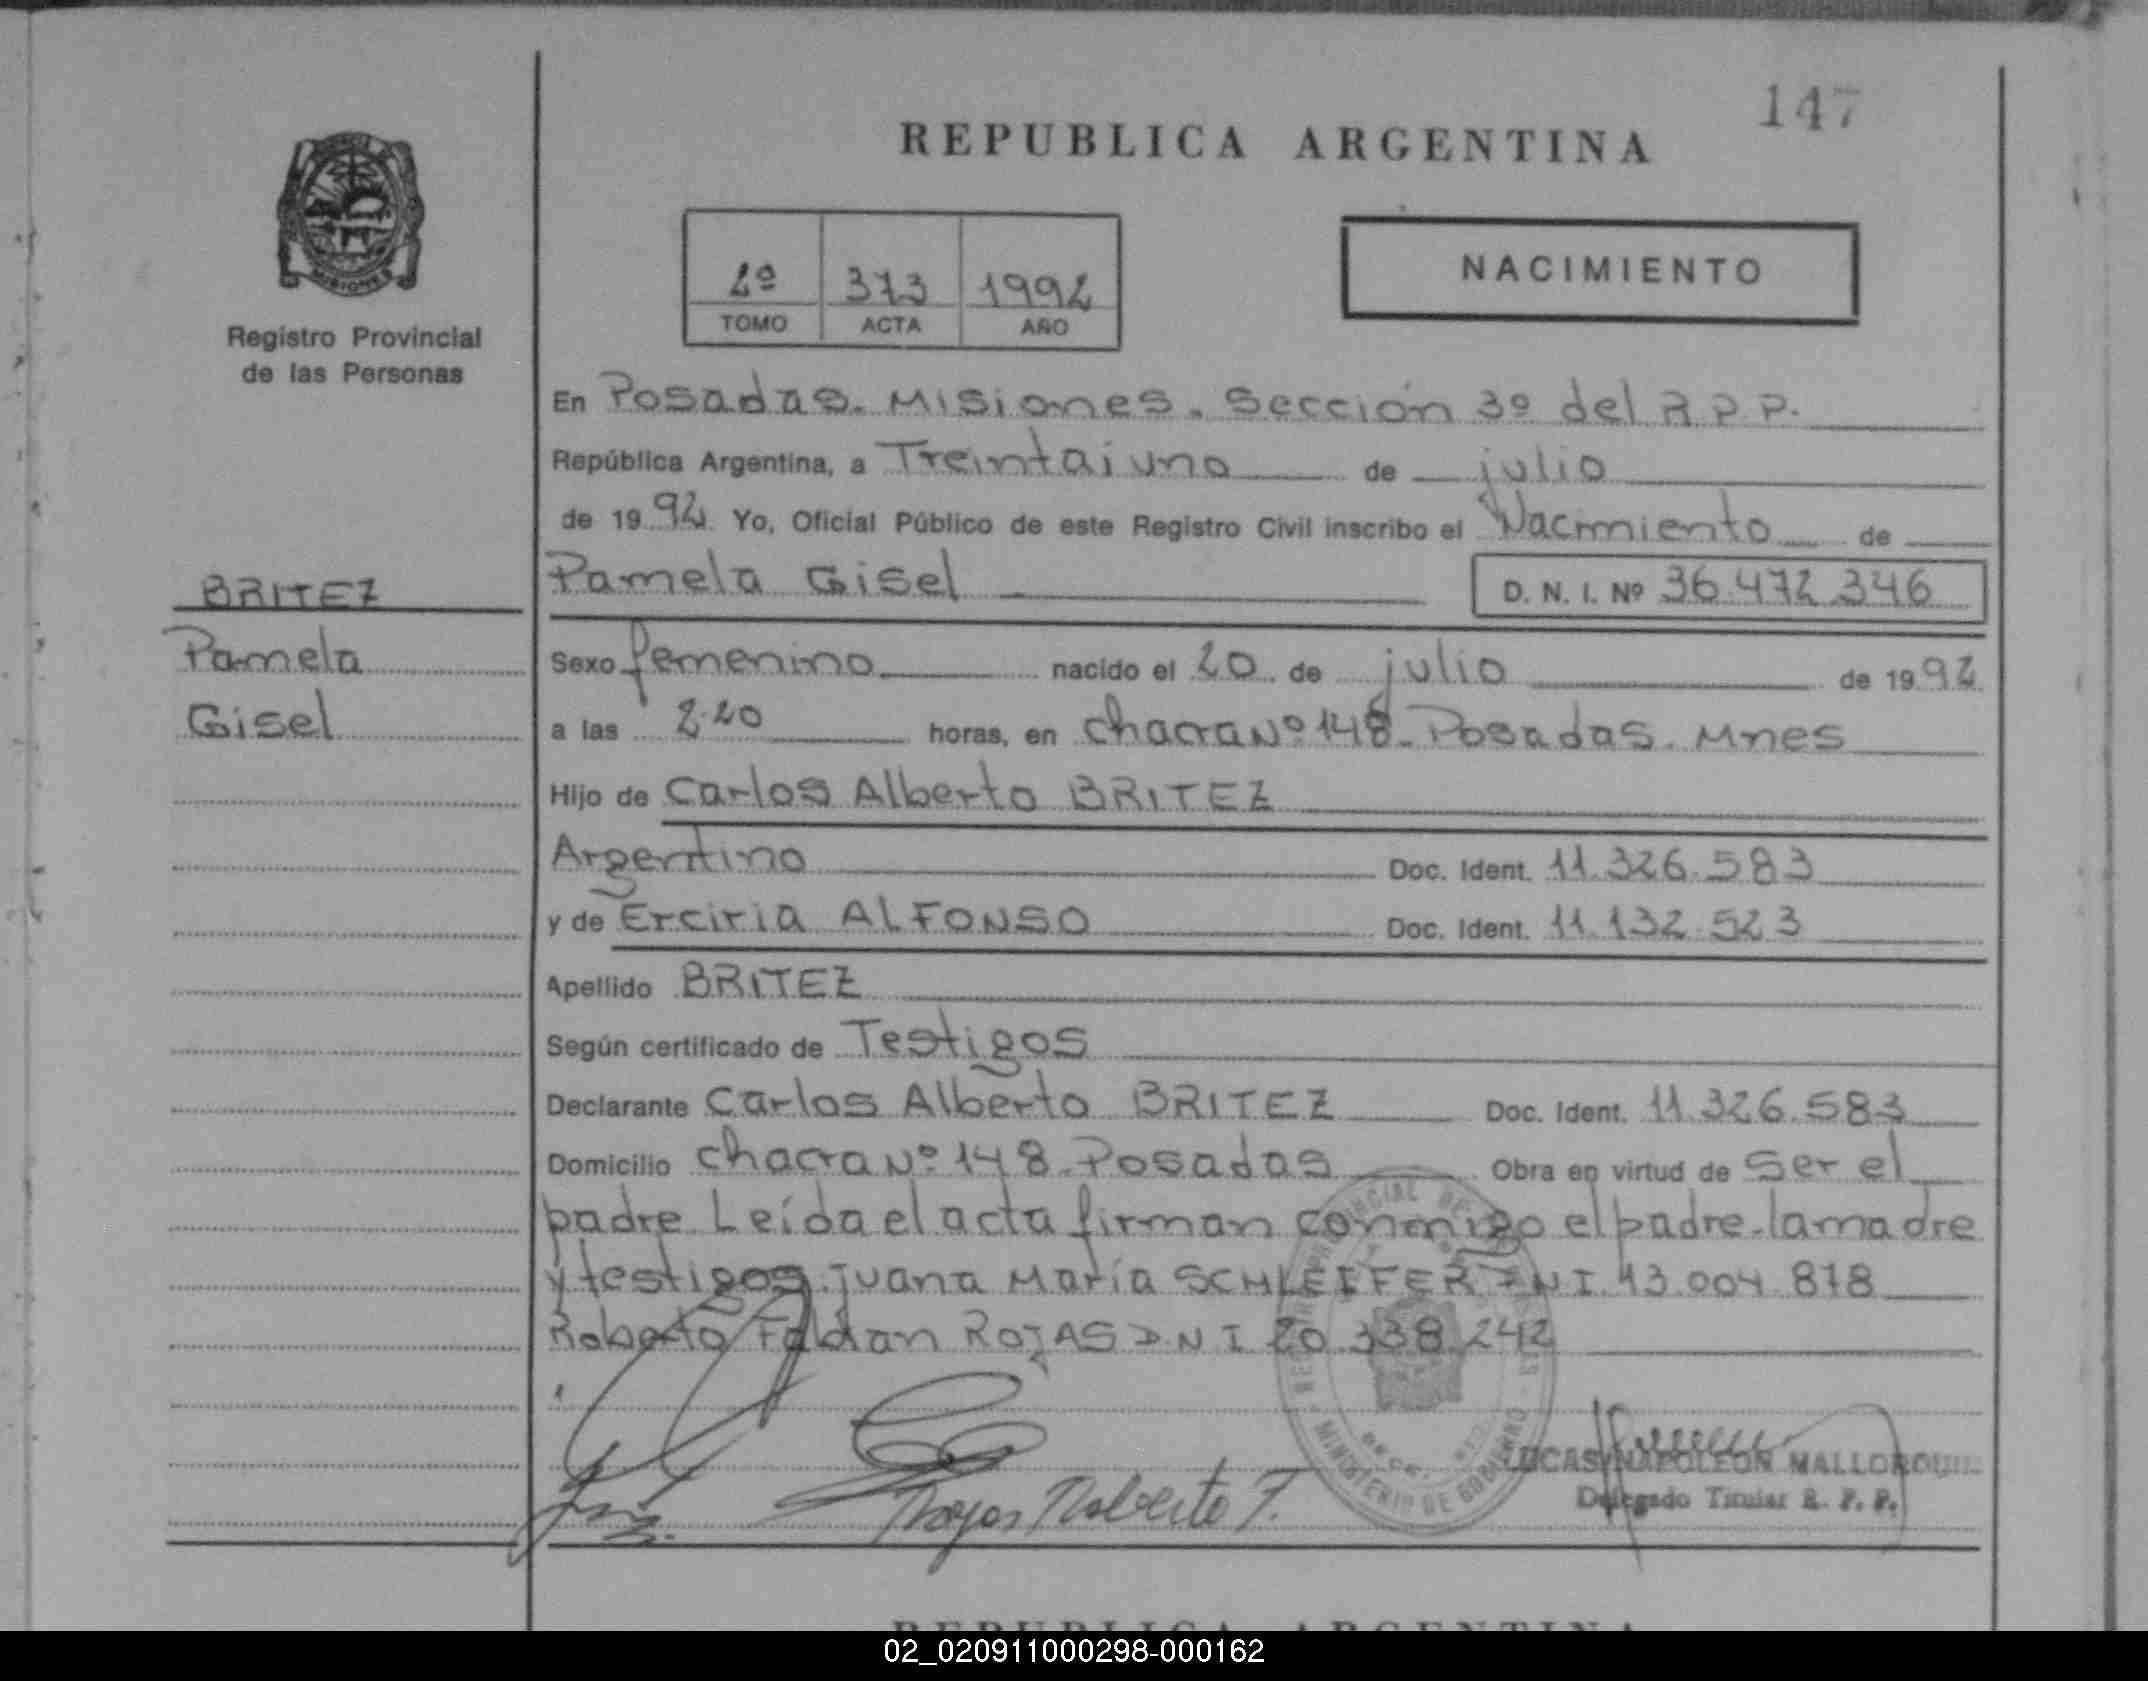 147
REPUBLICA ARGENTINA
MISIONES
Registro Provincial
de las Personas
2º 373 1992
TOMO ACTA AÑO
NACIMIENTO
En Posadas. Misiones. Sección 3º del R.P.P.
República Argentina, a Treintaiuno de julio
de 1992 Yo, Oficial Público de este Registro Civil inscribo el Nacimiento de
Pamela Gisel D. N. I. Nº 36.472.346
BRITEZ
Pamela
Gisel
Sexo femenino nacido el 20 de julio de 1992
a las 2.20 horas, en chacra Nº 148. Posadas. Mnes
Hijo de Carlos Alberto BRITEZ
Argentino Doc. Ident. 11.326.583
y de Erciria ALFONSO Doc. Ident. 11.132.523
Apellido BRITEZ
Según certificado de Testigos
Declarante Carlos Alberto BRITEZ Doc. Ident. 11.326.583
Domicilio chacra Nº 148. Posadas Obra en virtud de Ser el
padre. Leída el acta firman conmigo el padre. la madre
y testigos. Juana María SCHLEIFER DNI. 13.004.878
Roberto Fabian ROJAS D.N.I 20.338.242
Rojas Roberto F.
MINISTERIO DE GOBIERNO
LUCAS NAPOLEON MALLORQUIN
Delegado Titular R. P. P.
REPUBLICA ARGENTINA
02_020911000298-000162